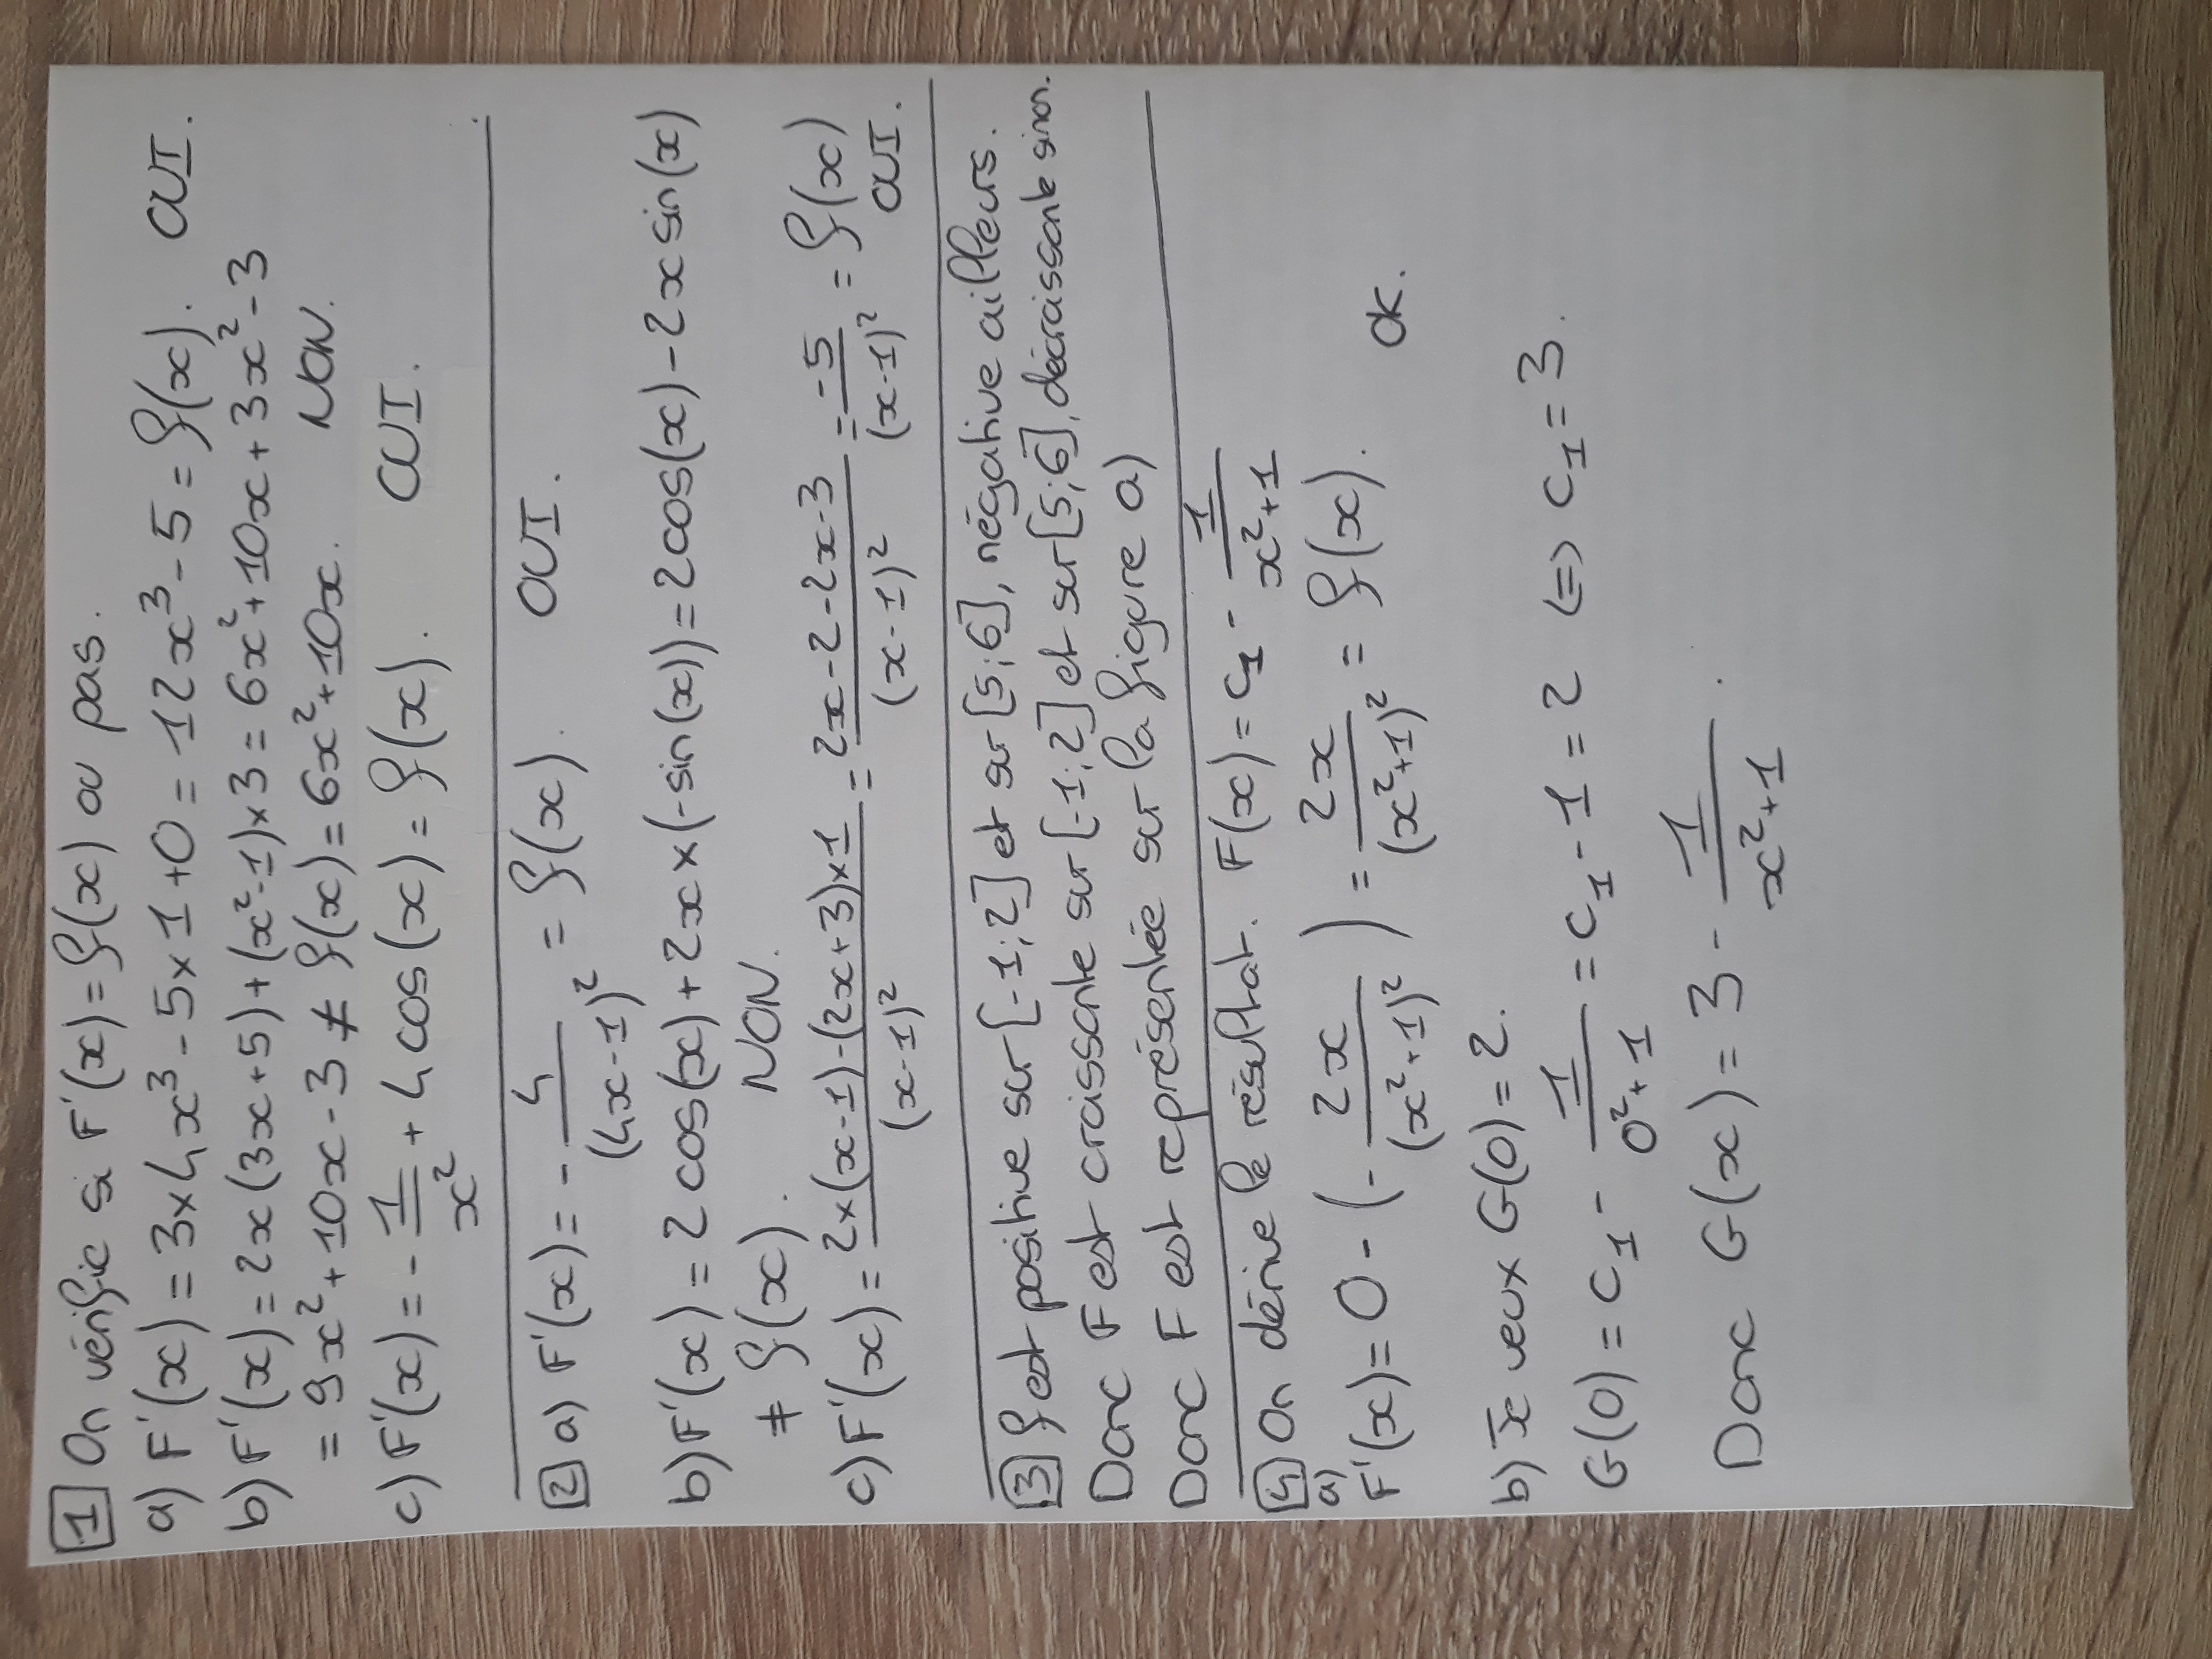 1 On vérifie si F'(x) = f(x) ou pas.
a) F'(x) = 3×4x³ - 5×1 + 0 = 12x³ - 5 = f(x). OUI.
b) F'(x) = 2x(3x+5) + (x²-1)×3 = 6x² + 10x + 3x² - 3
= 9x² + 10x - 3 ≠ f(x) = 6x² + 10x. NON.
c) F'(x) = - 1/x² + 4 cos(x) = f(x). OUI.
2 a) F'(x) = - 4/(4x-1)² = f(x). OUI.
b) F'(x) = 2 cos(x) + 2x × (-sin(x)) = 2cos(x) - 2x sin(x)
≠ f(x). NON.
c) F'(x) = (2×(x-1)-(2x+3)×1)/(x-1)² = (2x-2-2x-3)/(x-1)² = -5/(x-1)² = f(x)
OUI.
3 f est positive sur [-1;2] et sur [5;6], négative ailleurs.
Donc F est croissante sur [-1;2] et sur [5;6], décroissante sinon.
Donc F est représentée sur la figure a)
4 On dérive le résultat. F(x) = c₁ - 1/(x²+1)
a)
F'(x) = 0 - (- 2x/(x²+1)²) = 2x/(x²+1)² = f(x). OK.
b) Je veux G(0) = 2.
G(0) = c₁ - 1/(0²+1) = c₁ - 1 = 2 ⇔ c₁ = 3.
Donc G(x) = 3 - 1/(x²+1).